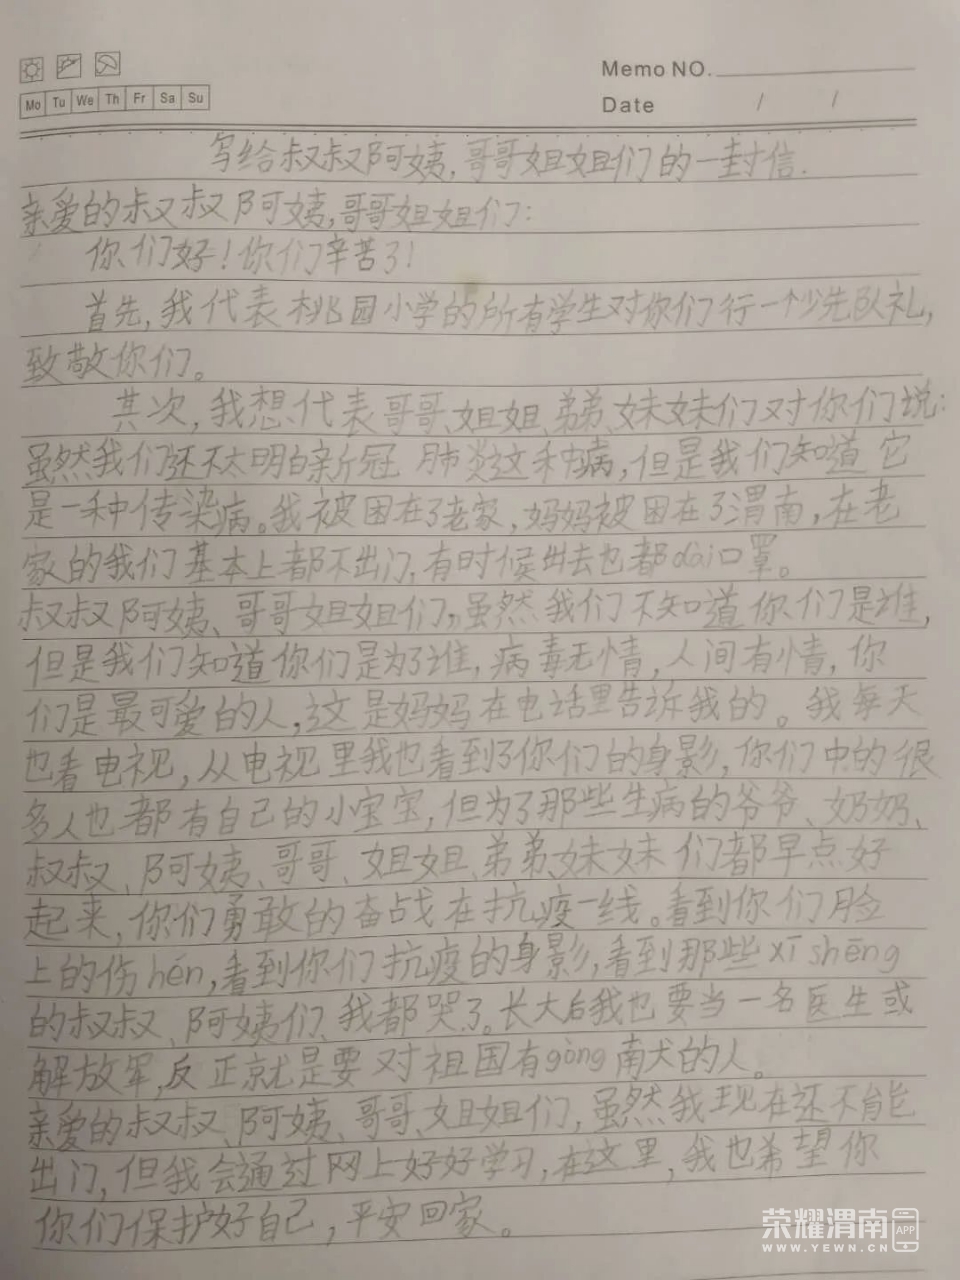 Memo NO.
Mo Tu We Th Fr Sa Su
Date / /
写给叔叔阿姨,哥哥姐姐们的一封信.
亲爱的叔叔阿姨,哥哥姐姐们:
你们好!你们辛苦了!
首先,我代表桃园小学的所有学生对你们行一个少先队礼,
致敬你们。
其次,我想代表哥哥、姐姐、弟弟、妹妹们对你们说:
虽然我们还不太明白新冠肺炎这种病,但是我们知道它
是一种传染病。我被困在了老家,妈妈被困在了渭南,在老
家的我们基本上都不出门,有时候出去也都dài口罩。
叔叔阿姨、哥哥姐姐们,虽然我们不知道你们是谁,
但是我们知道你们是为了谁,病毒无情,人间有情,你
们是最可爱的人,这是妈妈在电话里告诉我的。我每天
也看电视,从电视里我也看到了你们的身影,你们中的很
多人也都有自己的小宝宝,但为了那些生病的爷爷、奶奶、
叔叔、阿姨、哥哥、姐姐、弟弟、妹妹们都早点好
起来,你们勇敢的奋战在抗疫一线。看到你们脸
上的伤hén,看到你们抗疫的身影,看到那些xī shēng
的叔叔、阿姨们、我都哭了。长大后我也要当一名医生或
解放军,反正就是要对祖国有gòng南犬的人。
亲爱的叔叔、阿姨、哥哥、姐姐们,虽然我现在还不能
出门,但我会通过网上好好学习,在这里,我也希望你
你们保护好自己,平安回家。
荣耀渭南 APP
WWW.YEWN.CN